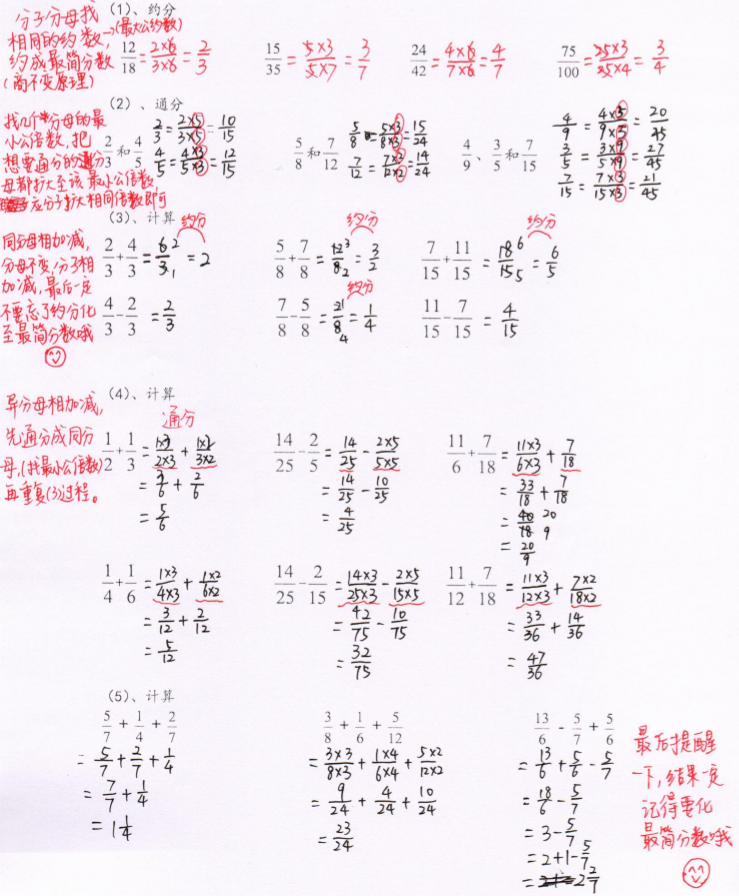 分子分母找
相同的约数→(最大公约数)
约成最简分数
(商不变原理)
(1)、约分
12/18 = 2×6/3×6 = 2/3
15/35 = 5×3/5×7 = 3/7
24/42 = 4×6/7×6 = 4/7
75/100 = 25×3/25×4 = 3/4
(2)、通分
找几个分母的最
小公倍数,把
想要通分的分
母都扩大至该最小公倍数,
应分子扩大相同倍数即可
2/3 和 4/5
2/3 = 2×5/3×5 = 10/15
4/5 = 4×3/5×3 = 12/15
5/8 和 7/12
5/8 = 5×3/8×3 = 15/24
7/12 = 7×2/12×2 = 14/24
4/9、3/5 和 7/15
4/9 = 4×5/9×5 = 20/45
3/5 = 3×9/5×9 = 27/45
7/15 = 7×3/15×3 = 21/45
(3)、计算
同分母相加减,
分母不变,分子相
加减,最后一定
不要忘了约分化
至最简分数哦
约分
2/3 + 4/3 = 6/3 2 1 = 2
约分
5/8 + 7/8 = 12/8 3 2 = 3/2
约分
7/15 + 11/15 = 18/15 6 5 = 6/5
4/3 - 2/3 = 2/3
约分
7/8 - 5/8 = 2/8 1 4 = 1/4
11/15 - 7/15 = 4/15
(4)、计算
异分母相加减,
先通分成同分
母,(找最小公倍数)
再重复(3)过程。
通分
1/2 + 1/3 = 1×3/2×3 + 1×2/3×2
= 3/6 + 2/6
= 5/6
14/25 - 2/5 = 14/25 - 2×5/5×5
= 14/25 - 10/25
= 4/25
11/6 + 7/18 = 11×3/6×3 + 7/18
= 33/18 + 7/18
= 40/18 20 9
= 20/9
1/4 + 1/6 = 1×3/4×3 + 1×2/6×2
= 3/12 + 2/12
= 5/12
14/25 - 2/15 = 14×3/25×3 - 2×5/15×5
= 42/75 - 10/75
= 32/75
11/12 + 7/18 = 11×3/12×3 + 7×2/18×2
= 33/36 + 14/36
= 47/36
(5)、计算
5/7 + 1/4 + 2/7
= 5/7 + 2/7 + 1/4
= 7/7 + 1/4
= 1 1/4
3/8 + 1/6 + 5/12
= 3×3/8×3 + 1×4/6×4 + 5×2/12×2
= 9/24 + 4/24 + 10/24
= 23/24
13/6 - 5/7 + 5/6
= 13/6 + 5/6 - 5/7
= 18/6 - 5/7
= 3 - 5/7
= 2+1- 5/7
= 2 2/7
最后提醒
一下,结果一定
记得要化
最简分数哦